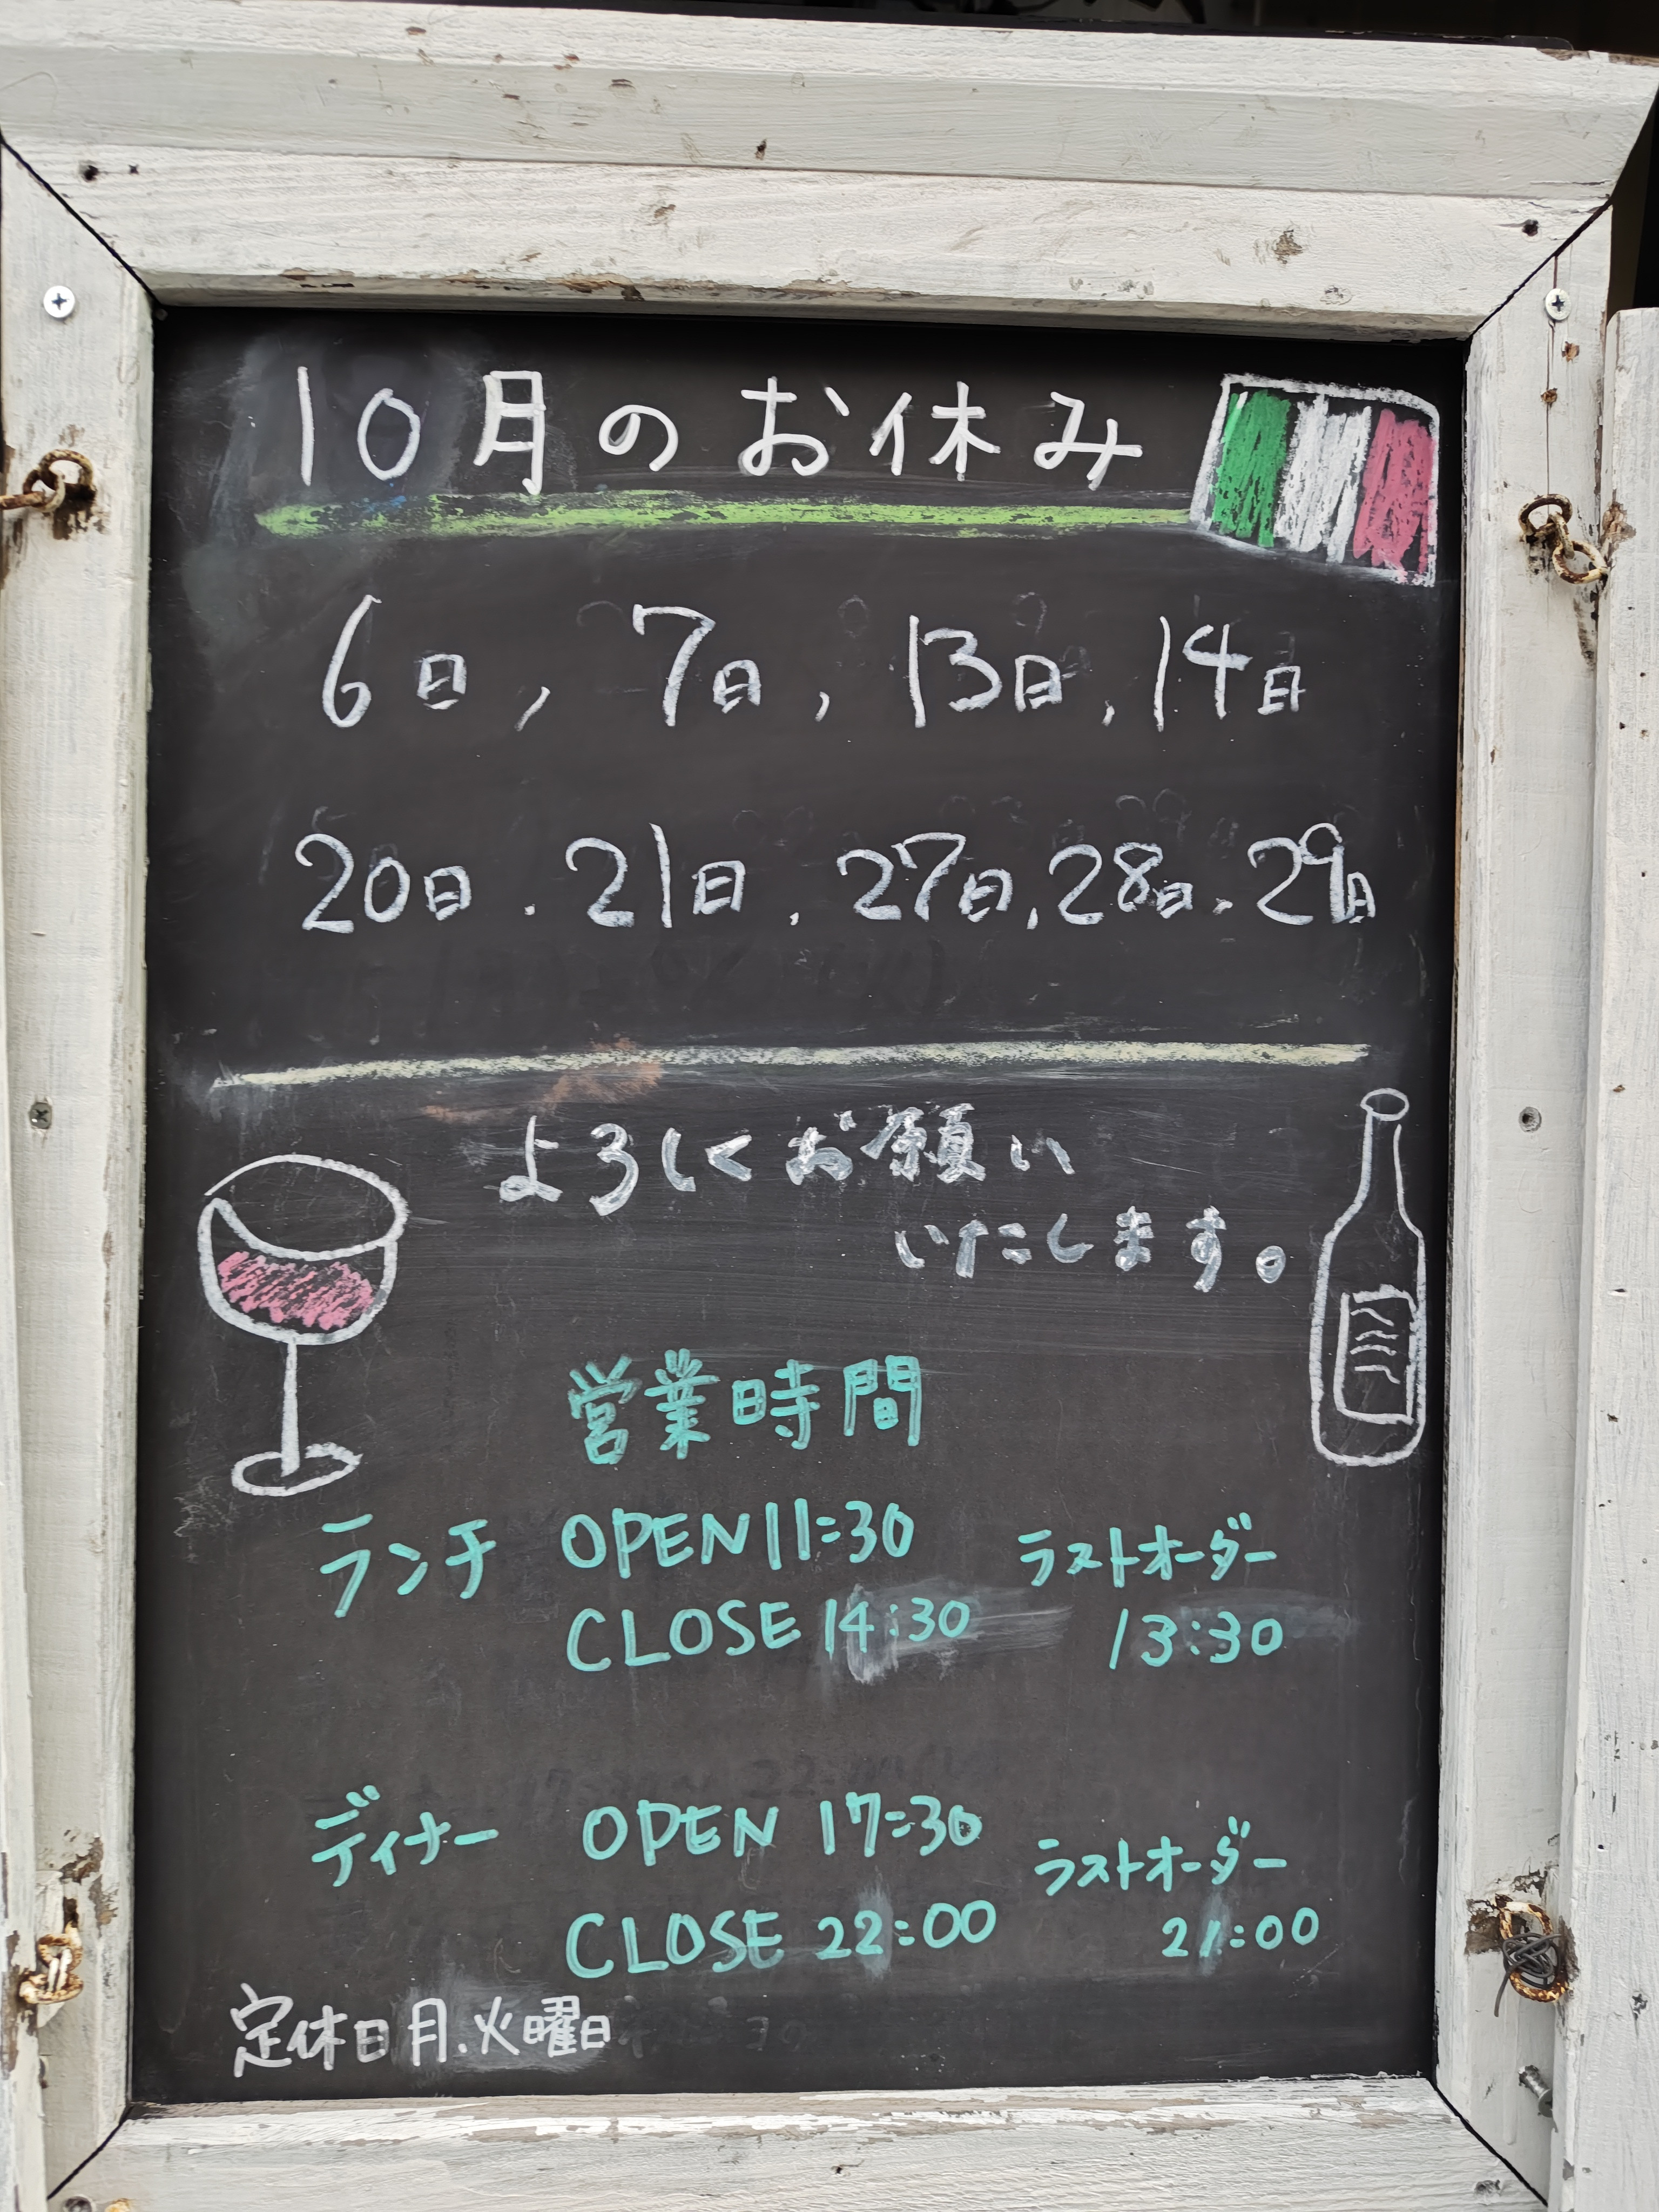 10月のお休み
6日, 7日, 13日, 14日
20日. 21日. 27日, 28日. 29日
よろしくお願い
いたします。
営業時間
ランチ OPEN 11:30 ラストオーダー
CLOSE 14:30 13:30
ディナー OPEN 17:30 ラストオーダー
CLOSE 22:00 21:00
定休日 月.火曜日